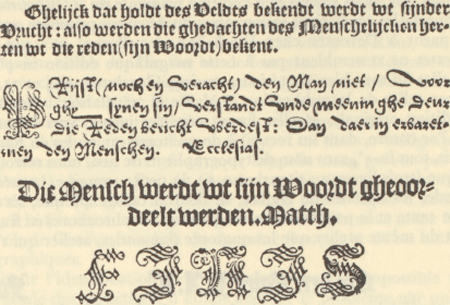 Ghelijck dat holdt des Veldes bekendt werdt wt sijnder
Vrucht: also werden die ghedachten des Menschelijcken her-
ten wt die reden (sijn Woordt) bekent.
Prijst (noch en veracht) den Man niet / voor
ghy synen sin / verstandt unde meeninghe deur
die Reden bericht werdest: Dan daer in ervaret-
men den Menschen. Ecclesias.
Die Mensch werdt wt sijn Woordt gheoor-
deelt werden. Matth.